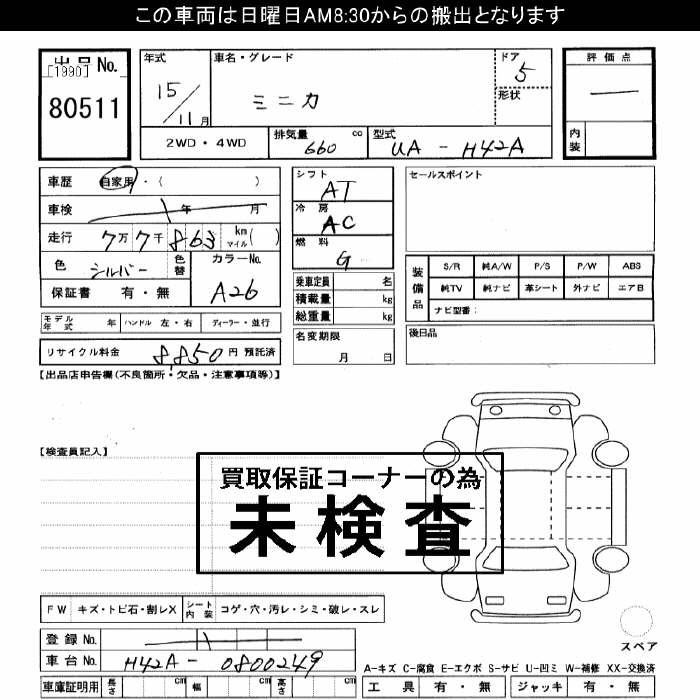 この車両は日曜日AM8:30からの搬出となります
出品 No.
[1990]
80511
年式
15/11月
車名・グレード
ミニカ
ドア
5
形状
2WD・4WD
排気量 660 cc
型式 UA-H42A
評価点
―
内装
車歴 自家用・( )
車検 年 月
走行 7万7千863 km マイル( )
色 シルバー 色替
カラーNo. A26
保証書 有・無
モデル年式 年 ハンドル 左・右 ディーラー・並行
リサイクル料金 8,850 円 預託済
シフト AT
冷房 AC
燃料 G
乗車定員 名
積載量 kg
総重量 kg
名変期限
月 日
セールスポイント
装備品
S/R 純A/W P/S P/W ABS
純TV 純ナビ 革シート 外ナビ エアB
ナビ型番:
後日品
【出品店申告欄(不良箇所・欠品・注意事項等)】
【検査員記入】
買取保証コーナーの為
未検査
FW キズ・トビ石・割レX シート内装 コゲ・穴・汚レ・シミ・破レ・スレ
登録 No.
車台 No. H42A-0800249
車庫証明用 長さ cm 幅 cm 高さ cm
スペア
A-キズ C-腐食 E-エクボ S-サビ U-凹ミ W-補修 XX-交換済
工具 有・無 ジャッキ 有・無